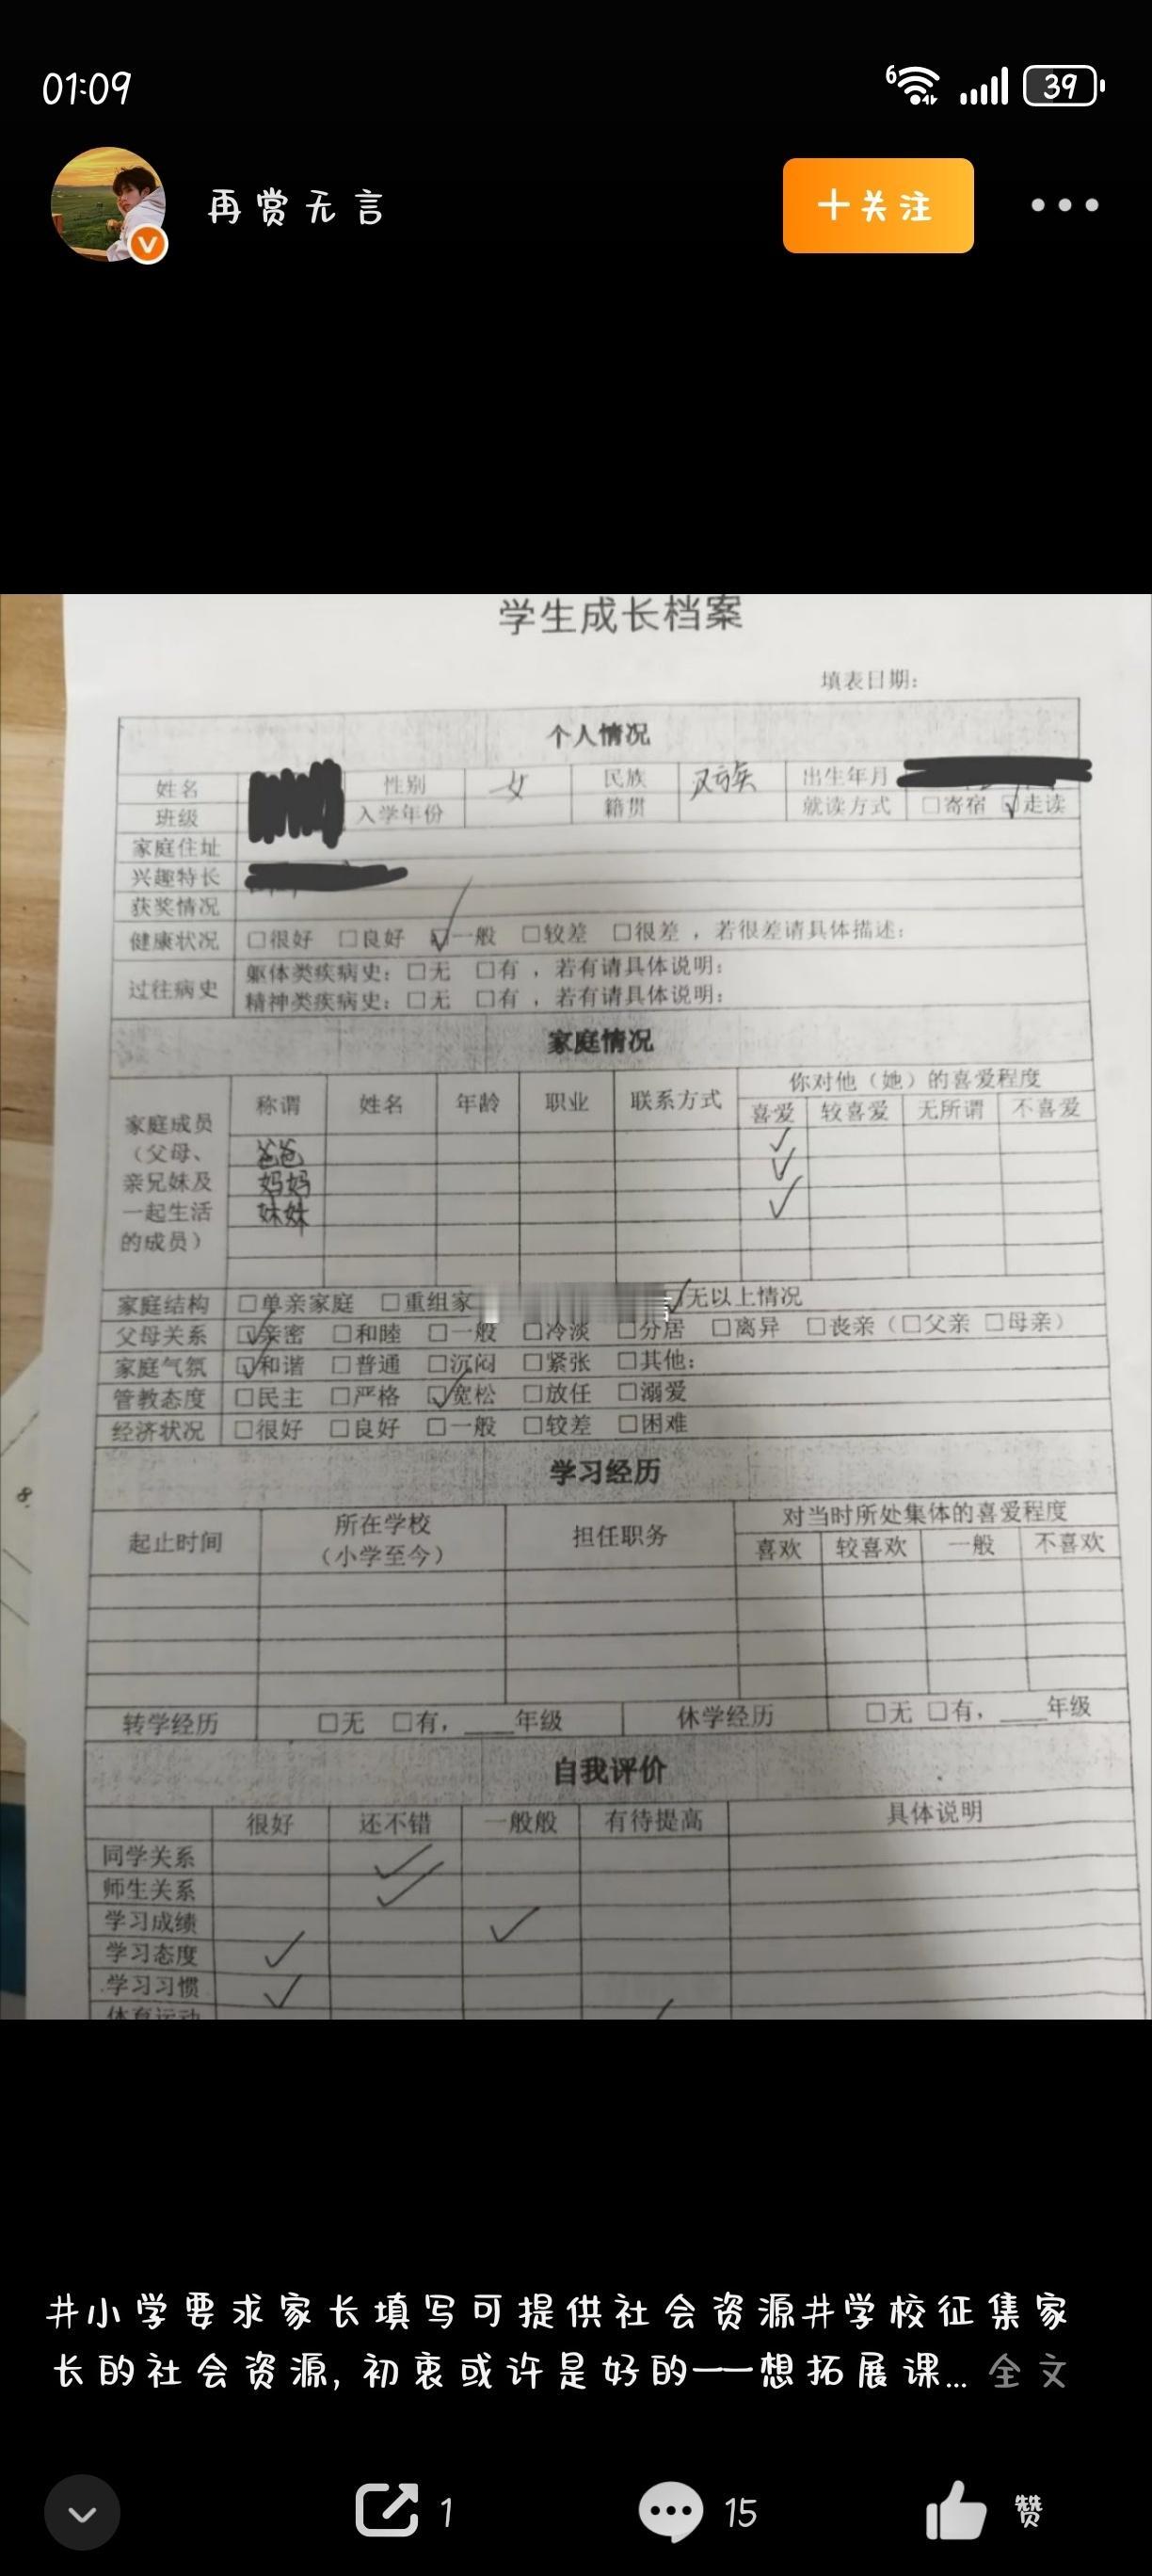 01:09
6
39
再赏无言
+关注
学生成长档案
填表日期:
个人情况
姓名 性别 女 民族 汉族 出生年月
班级 入学年份 籍贯 就读方式 □寄宿 ☑走读
家庭住址
兴趣特长
获奖情况
健康状况 □很好 □良好 ☑一般 □较差 □很差，若很差请具体描述:
过往病史 躯体类疾病史: □无 □有，若有请具体说明:
精神类疾病史: □无 □有，若有请具体说明:
家庭情况
家庭成员（父母、亲兄妹及一起生活的成员） 称谓 姓名 年龄 职业 联系方式 你对他（她）的喜爱程度
喜爱 较喜爱 无所谓 不喜爱
爸爸 ✓
妈妈 ✓
妹妹 ✓
家庭结构 □单亲家庭 □重组家 ☑无以上情况
父母关系 ☑亲密 □和睦 □一般 □冷淡 □分居 □离异 □丧亲（□父亲 □母亲）
家庭气氛 ☑和谐 □普通 □沉闷 □紧张 □其他:
管教态度 □民主 □严格 ☑宽松 □放任 □溺爱
经济状况 □很好 □良好 □一般 □较差 □困难
学习经历
起止时间 所在学校（小学至今） 担任职务 对当时所处集体的喜爱程度
喜欢 较喜欢 一般 不喜欢
转学经历 □无 □有，____年级 休学经历 □无 □有，____年级
自我评价
很好 还不错 一般般 有待提高 具体说明
同学关系 ✓
师生关系 ✓
学习成绩 ✓
学习态度 ✓
学习习惯 ✓
体育运动
8.
#小学要求家长填写可提供社会资源#学校征集家
长的社会资源，初衷或许是好的——想拓展课... 全文
1
15
赞